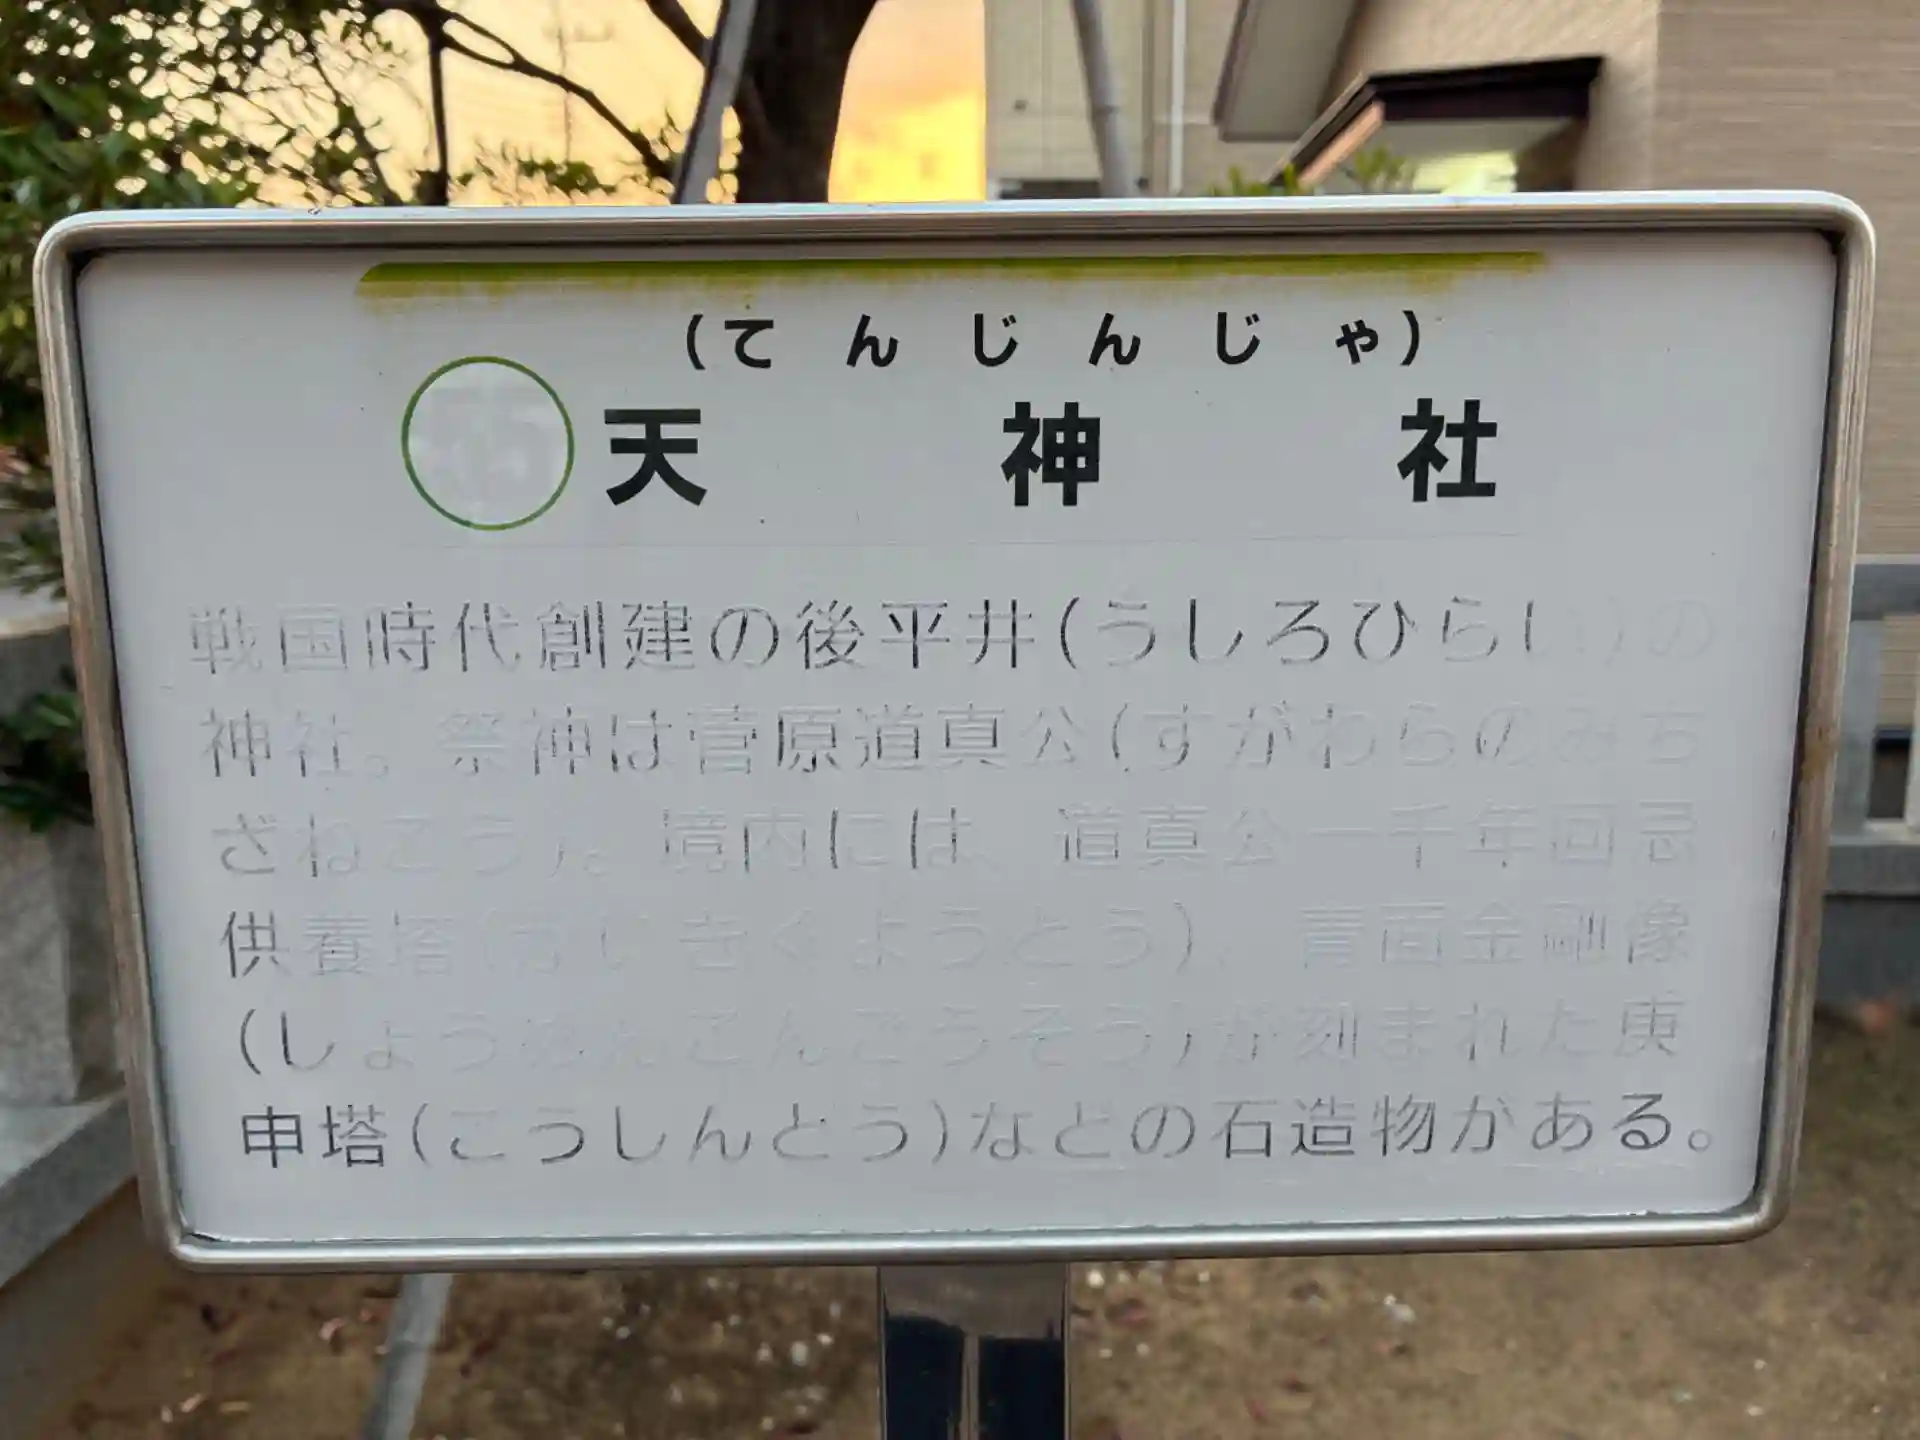 (てんじんじゃ)
天神社
戦国時代創建の後平井(うしろひらい)の
神社。祭神は菅原道真公(すがわらのみち
ざねこう)。境内には、道真公一千年回忌
供養塔(かいきくようとう)、青面金剛像
(しょうめんこんごうぞう)が刻まれた庚
申塔(こうしんとう)などの石造物がある。